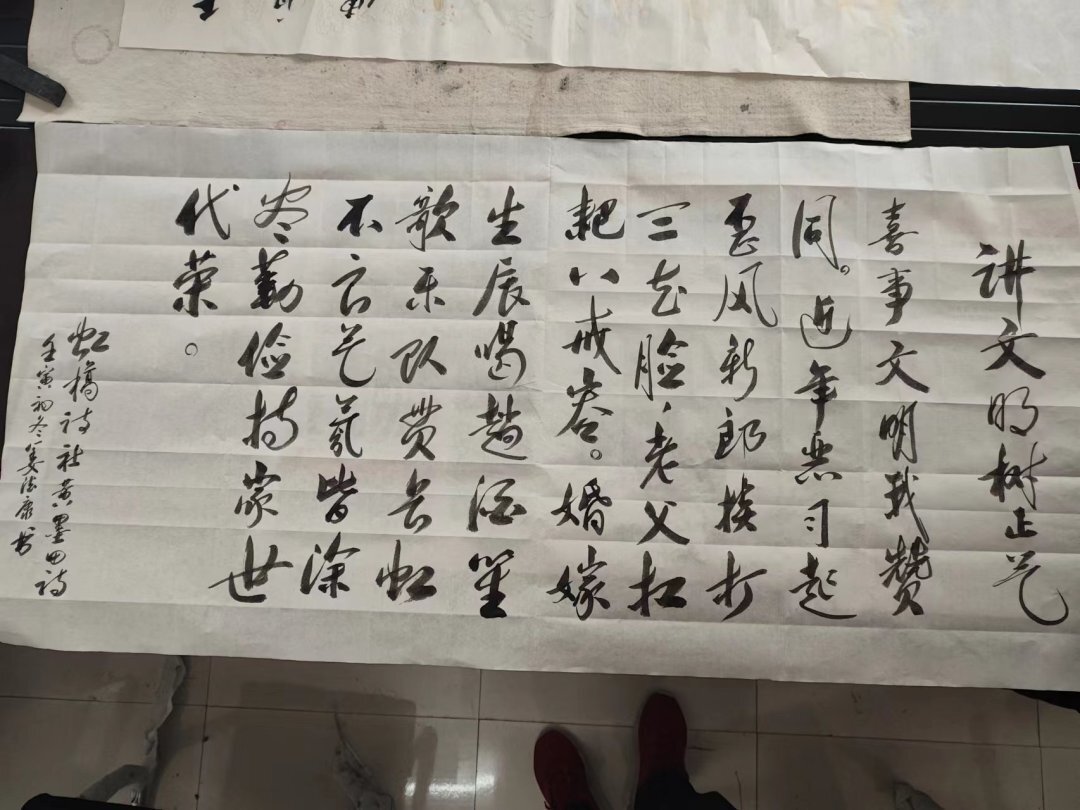 讲文明树正气
喜事文明我赞
同。近年恶习起
歪风新郎挨打
三花脸，老父扛
耙八戒容。婚嫁
生辰喝趟酒笙
歌乐队费长虹
不良之氛皆涤
尽勤俭持家世
代荣。
虹桥诗社黄墨田诗
壬寅初冬姜法康书